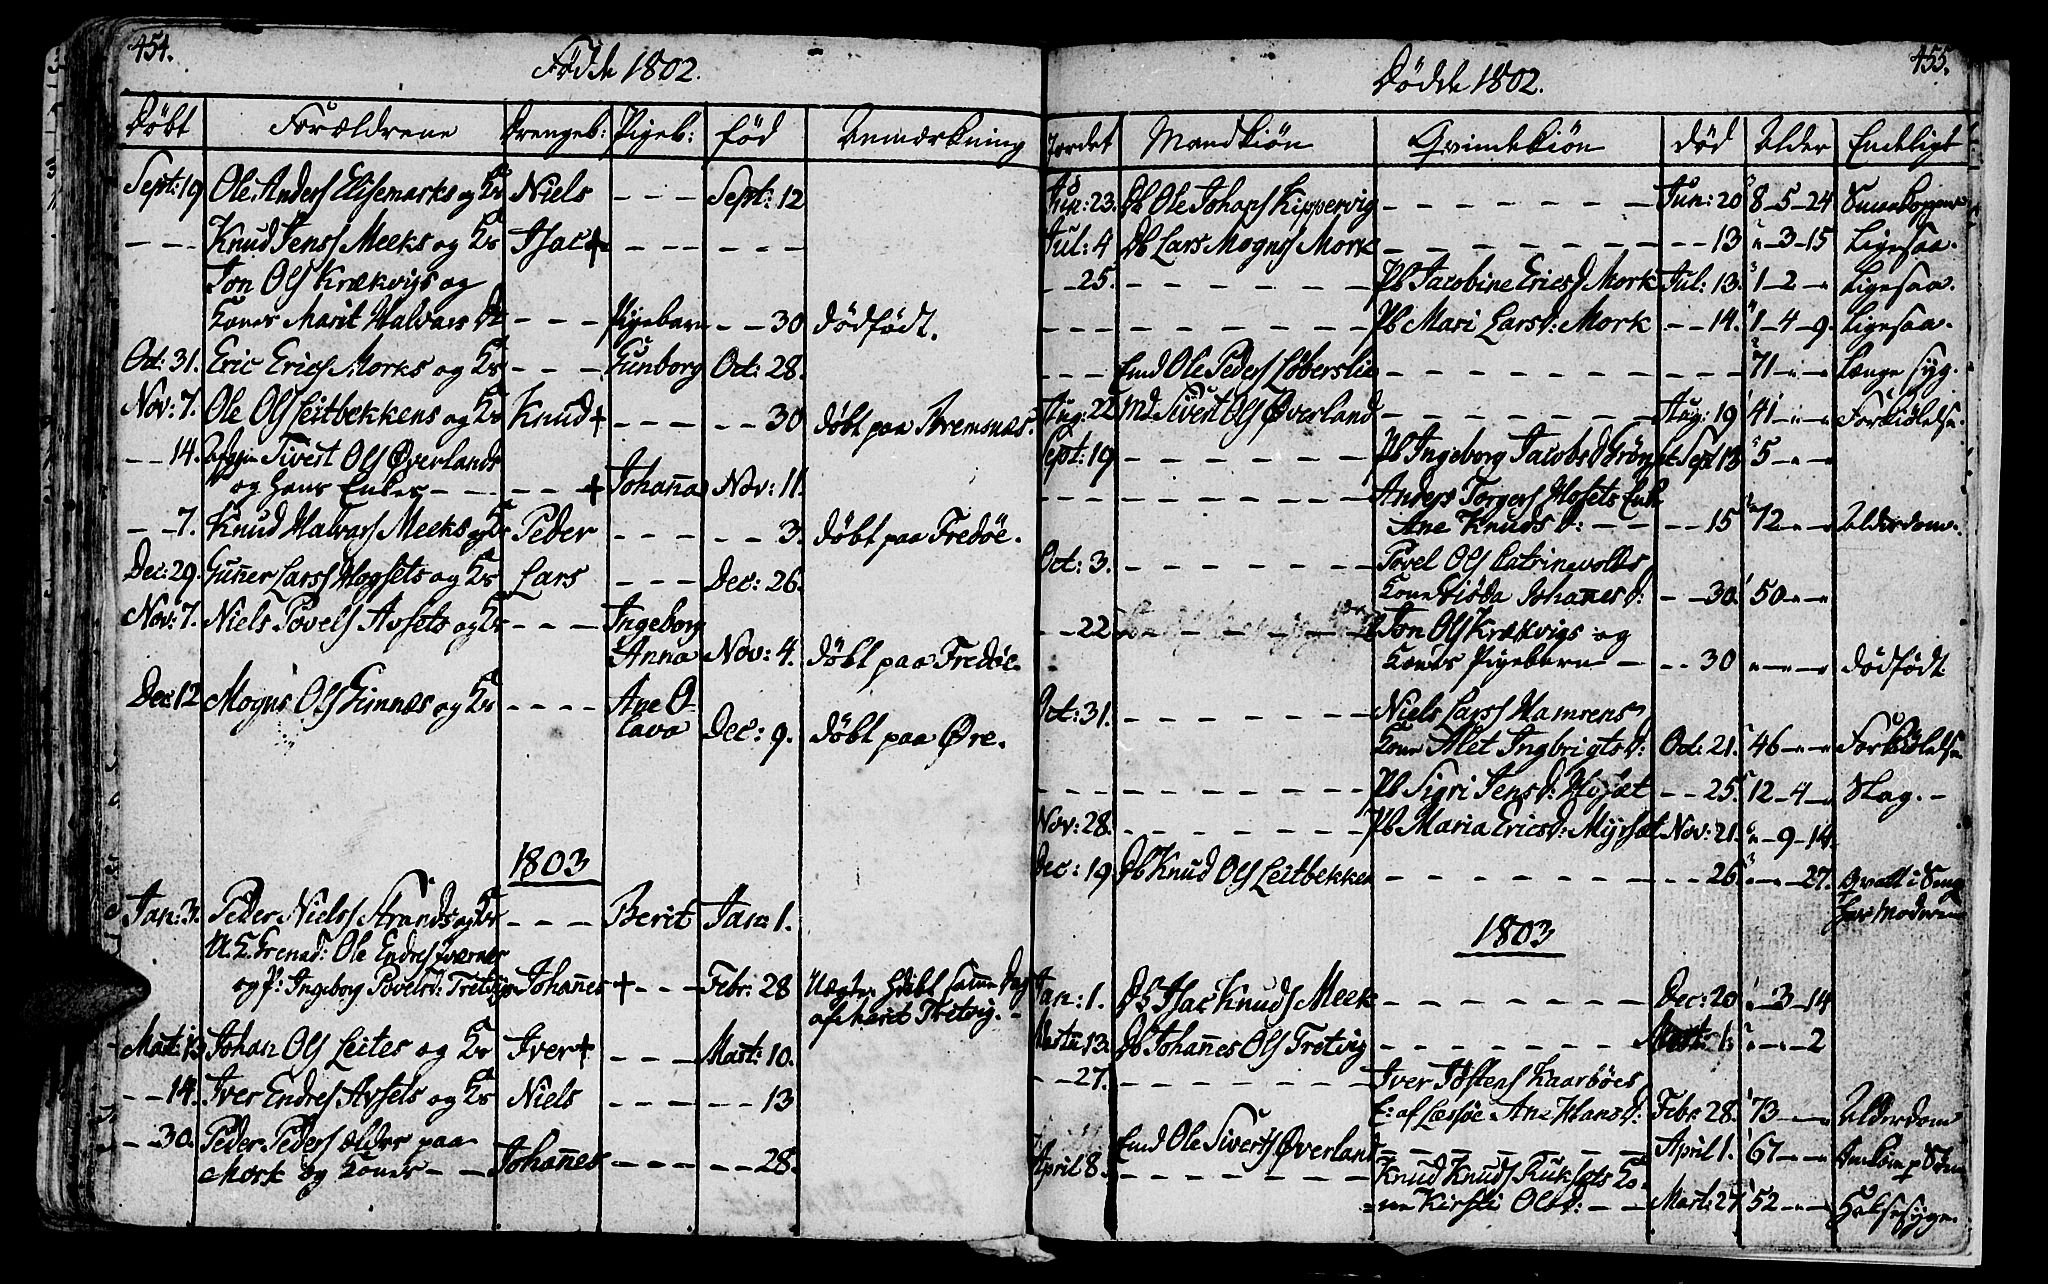 454.
Fødde 1802.
Døbt Forældrene Drengeb: Pigeb: fød Anmærkning
Sept: 19 Ole Anders Elisemarks og Ko Niels - - - Sept: 12
- - - Knud Jens Meeks og Ko Isac + - - - - - -
Jon Ols Krækvigs og
Kones Marit Halvars D: - - - Pigebarn - - 30 dødfødt.
Oct: 31. Eric Erics Morks og Ko - - - Gunborg Oct: 28.
Nov: 7. Ole Ols Leitbekkens og Ko Knud + - - - - - 30 døbt paa Bremsnæs.
- - 14. afgn Sivert Ols Øverlands
og hans Enkes - - - - - + Johanna Nov: 11.
- - 7. Knud Halvars Meeks og Ko Peder - - - - - 3. døbt paa Fredøe.
Dec: 29. Guner Lars Hogsets og Ko Lars - - - Dec: 26.
Nov: 7. Niels Povels Avsets og Ko - - - Ingeborg
Anna Nov: 4. døbt paa Fredøe
Dec: 12 Mogns Ols Gimnæs og Ko - - - - Ane O-
lava Dec: 9. døbt paa Øre.
1803
Jan: 3. Peder Niels Strands og Ko - - - Berit Jan: 1.
Ole Endres
og P: Ingeborg Povelsd: Tretvig Johannes + - - - Febr: 28 døbt samme Dag
af Marit Tretvig. -
Mart: 13 Johan Ols Leites og Ko Iver + - - - Mart: 10.
- - 14. Iver Endres Avsets og Ko Niels - - - - - - 13
- - 30. Peder Peders ælder paa
Mork og Kones - - Johannes - - - - - - 28.
455.
Dødde 1802.
Jordet Mandkiøn Qvindekiøn død Alder Endeligt
Jun: 23. Db Ole Johans Kippervig - - - - - - Jun: 20 8 - 5 - 24 Smaakopper
Jul: 4 Db Lars Mogns Mork - - - - - - - - - 13 " - 3 - 15 Ligesaa.
- - 25. - - - - - - Pb Jacobine Erics D Mork Jul: 13. 1 - 2 - " Ligesaa.
- - - - - - - - - Pb Mari Lars D: Mork - - 14. 1 - 4 - 9. Ligesaa.
- - - Emd Ole Peders Løberslie - - - - - - - - - - 71 - " - " Længe syg.
Aug: 22 Md Sivert Ols Øverland - - - - - - - Aug: 19 41 - " - " Forkiølelse.
Sept: 19 - - - - - - Pb Ingeborg Jacobs D Sept 13 5 - " - "
- - - - - - - - - Anders Torgers Hosets Enke
Ane Knuds D: - - - - 15 72 - " - " Alderdom.
Oct: 3. - - - - - - Povel Ols Catrinevolds
Kone Giøda Johanes d: - - 30. 50 - " - "
- - 22 Jon Ols Krækvigs og
Kones Pigebarn - - - 30 " - " - " dødfødt
Oct: 31. - - - - - - Niels Lars Hamrens
Kone Alet Ingbrigts D: Oct: 21. 46 - " - " Forkiølelse
- - - - - - - - - Pb Sigri Jens D: Hosæt - - 25. 12 - 4 - " Slag. -
Nov: 28. - - - - - - Pb Maria Erics D: Myrsæt Nov: 21. " - 9 - 14.
Dec: 19 Db Knud Ols Leitbekken - - - - - - - 26 " - " - 27. Qvalt i Seng
hos Moderen
1803
Jan: 1. Db Isac Knuds Meek - - - - - - - Dec: 20 " - 3 - 14
Marts 13. Db Johannes Ols Tretvig - - - - - - - Mart: 1. " - " - 2
- - 27. - - - - - - Iver Jøstens Kaarbøes
E: af Læsøe Ane Hans D: Febr: 28. 73 - - " Alderdom
Emd Ole Siverts Øverland - - - - - - April 1. 67 - " - "
April 8. - - - - - - Knud Knuds Kuksets Ko-
ne Kirsti Olsd: - - Mart: 27 52 - " - " Halssyge.